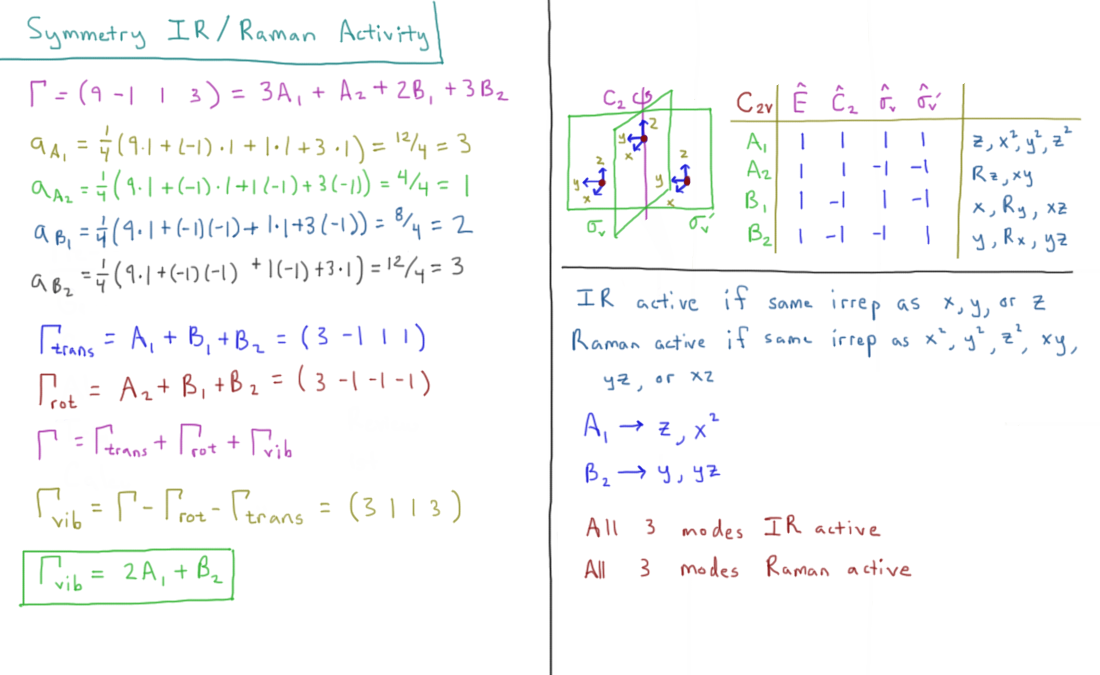 Symmetry IR/Raman Activity
Γ = (9 -1 1 3) = 3A₁ + A₂ + 2B₁ + 3B₂
a_A₁ = 1/4 (9·1 + (-1)·1 + 1·1 + 3·1) = 12/4 = 3
a_A₂ = 1/4 (9·1 + (-1)·1 + 1(-1) + 3(-1)) = 4/4 = 1
a_B₁ = 1/4 (9·1 + (-1)(-1) + 1·1 + 3(-1)) = 8/4 = 2
a_B₂ = 1/4 (9·1 + (-1)(-1) + 1(-1) + 3·1) = 12/4 = 3
Γtrans = A₁ + B₁ + B₂ = (3 -1 1 1)
Γrot = A₂ + B₁ + B₂ = (3 -1 -1 -1)
Γ = Γtrans + Γrot + Γvib
Γvib = Γ - Γrot - Γtrans = (3 1 1 3)
Γvib = 2A₁ + B₂
C₂
z
y
x
z
y
x
z
y
x
σᵥ
σᵥ'
C₂ᵥ Ê Ĉ₂ σ̂ᵥ σ̂ᵥ'
A₁ 1 1 1 1 z, x², y², z²
A₂ 1 1 -1 -1 Rz, xy
B₁ 1 -1 1 -1 x, Ry, xz
B₂ 1 -1 -1 1 y, Rx, yz
IR active if same irrep as x, y, or z
Raman active if same irrep as x², y², z², xy,
yz, or xz
A₁ → z, x²
B₂ → y, yz
All 3 modes IR active
All 3 modes Raman active